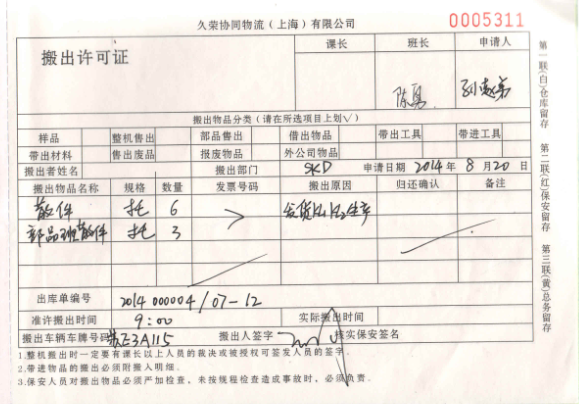 久荣协同物流（上海）有限公司
0005311
搬出许可证
课长 班长 申请人
陈勇
搬出物品分类（请在所选项目上划√）
样品 整机售出 部品售出 借出物品 带出工具 带进工具
带出材料 售出废品 报废物品 外公司物品
搬出者姓名 搬出部门 SKD 申请日期 2014年 8月 20日
搬出物品名称 规格 数量 发票号码 搬出原因 归还确认 备注
散件 托 6
部品班散件 托 3
出库单编号 2014 000004/07-12
准许搬出时间 9:00 实际搬出时间
搬出车辆车牌号码 Z3A115 搬出人签字 核实保安签名
1.整机搬出时一定要有课长以上人员的裁决或被授权可签发人员的签字
2.带进物品的搬出必须附搬入明细.
3.保安人员对搬出物品必须严加检查，未按规程检查造成事故时，必须负责.
第一联(白)仓库留存
第二联(红)保安留存
第三联(黄)总务留存